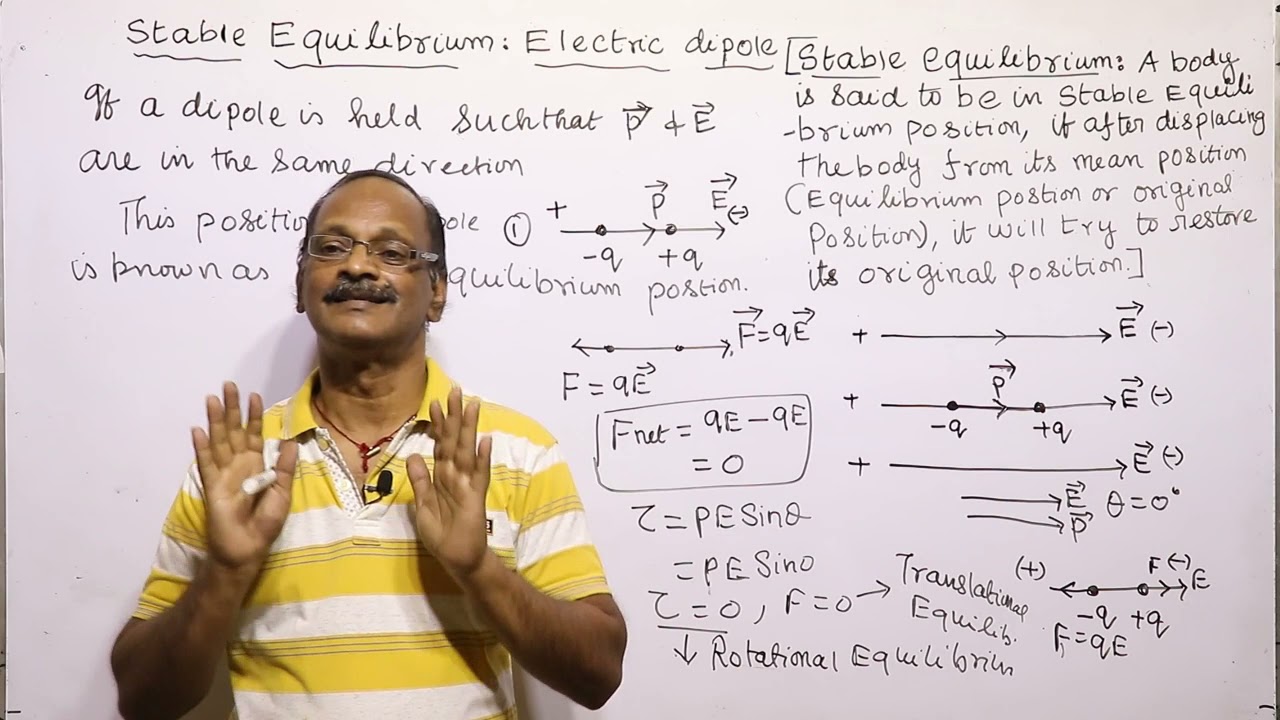 Stable Equilibrium: Electric dipole
If a dipole is held such that p⃗ & E⃗
are in the same direction
This positio pole
is known as quilibrium postion.
① + p⃗ E⃗ (-)
-q +q
[Stable equilibrium: A body
is said to be in Stable Equili
-brium position, if after displacing
the body from its mean position
(Equilibrium postion or original
Position), it will try to restore
its original position.]
F⃗=qE⃗
F = qE⃗
Fnet = qE-qE
= 0
τ = PE Sinθ
= PE Sin0
τ = 0, F=0 → Translational
Equilib.
↓ Rotational Equilibrium
+ E⃗ (-)
+ p⃗ E⃗ (-)
-q +q
+ E⃗ (-)
E⃗ θ = 0°
p⃗
(+) F (-) E
-q +q
F = qE